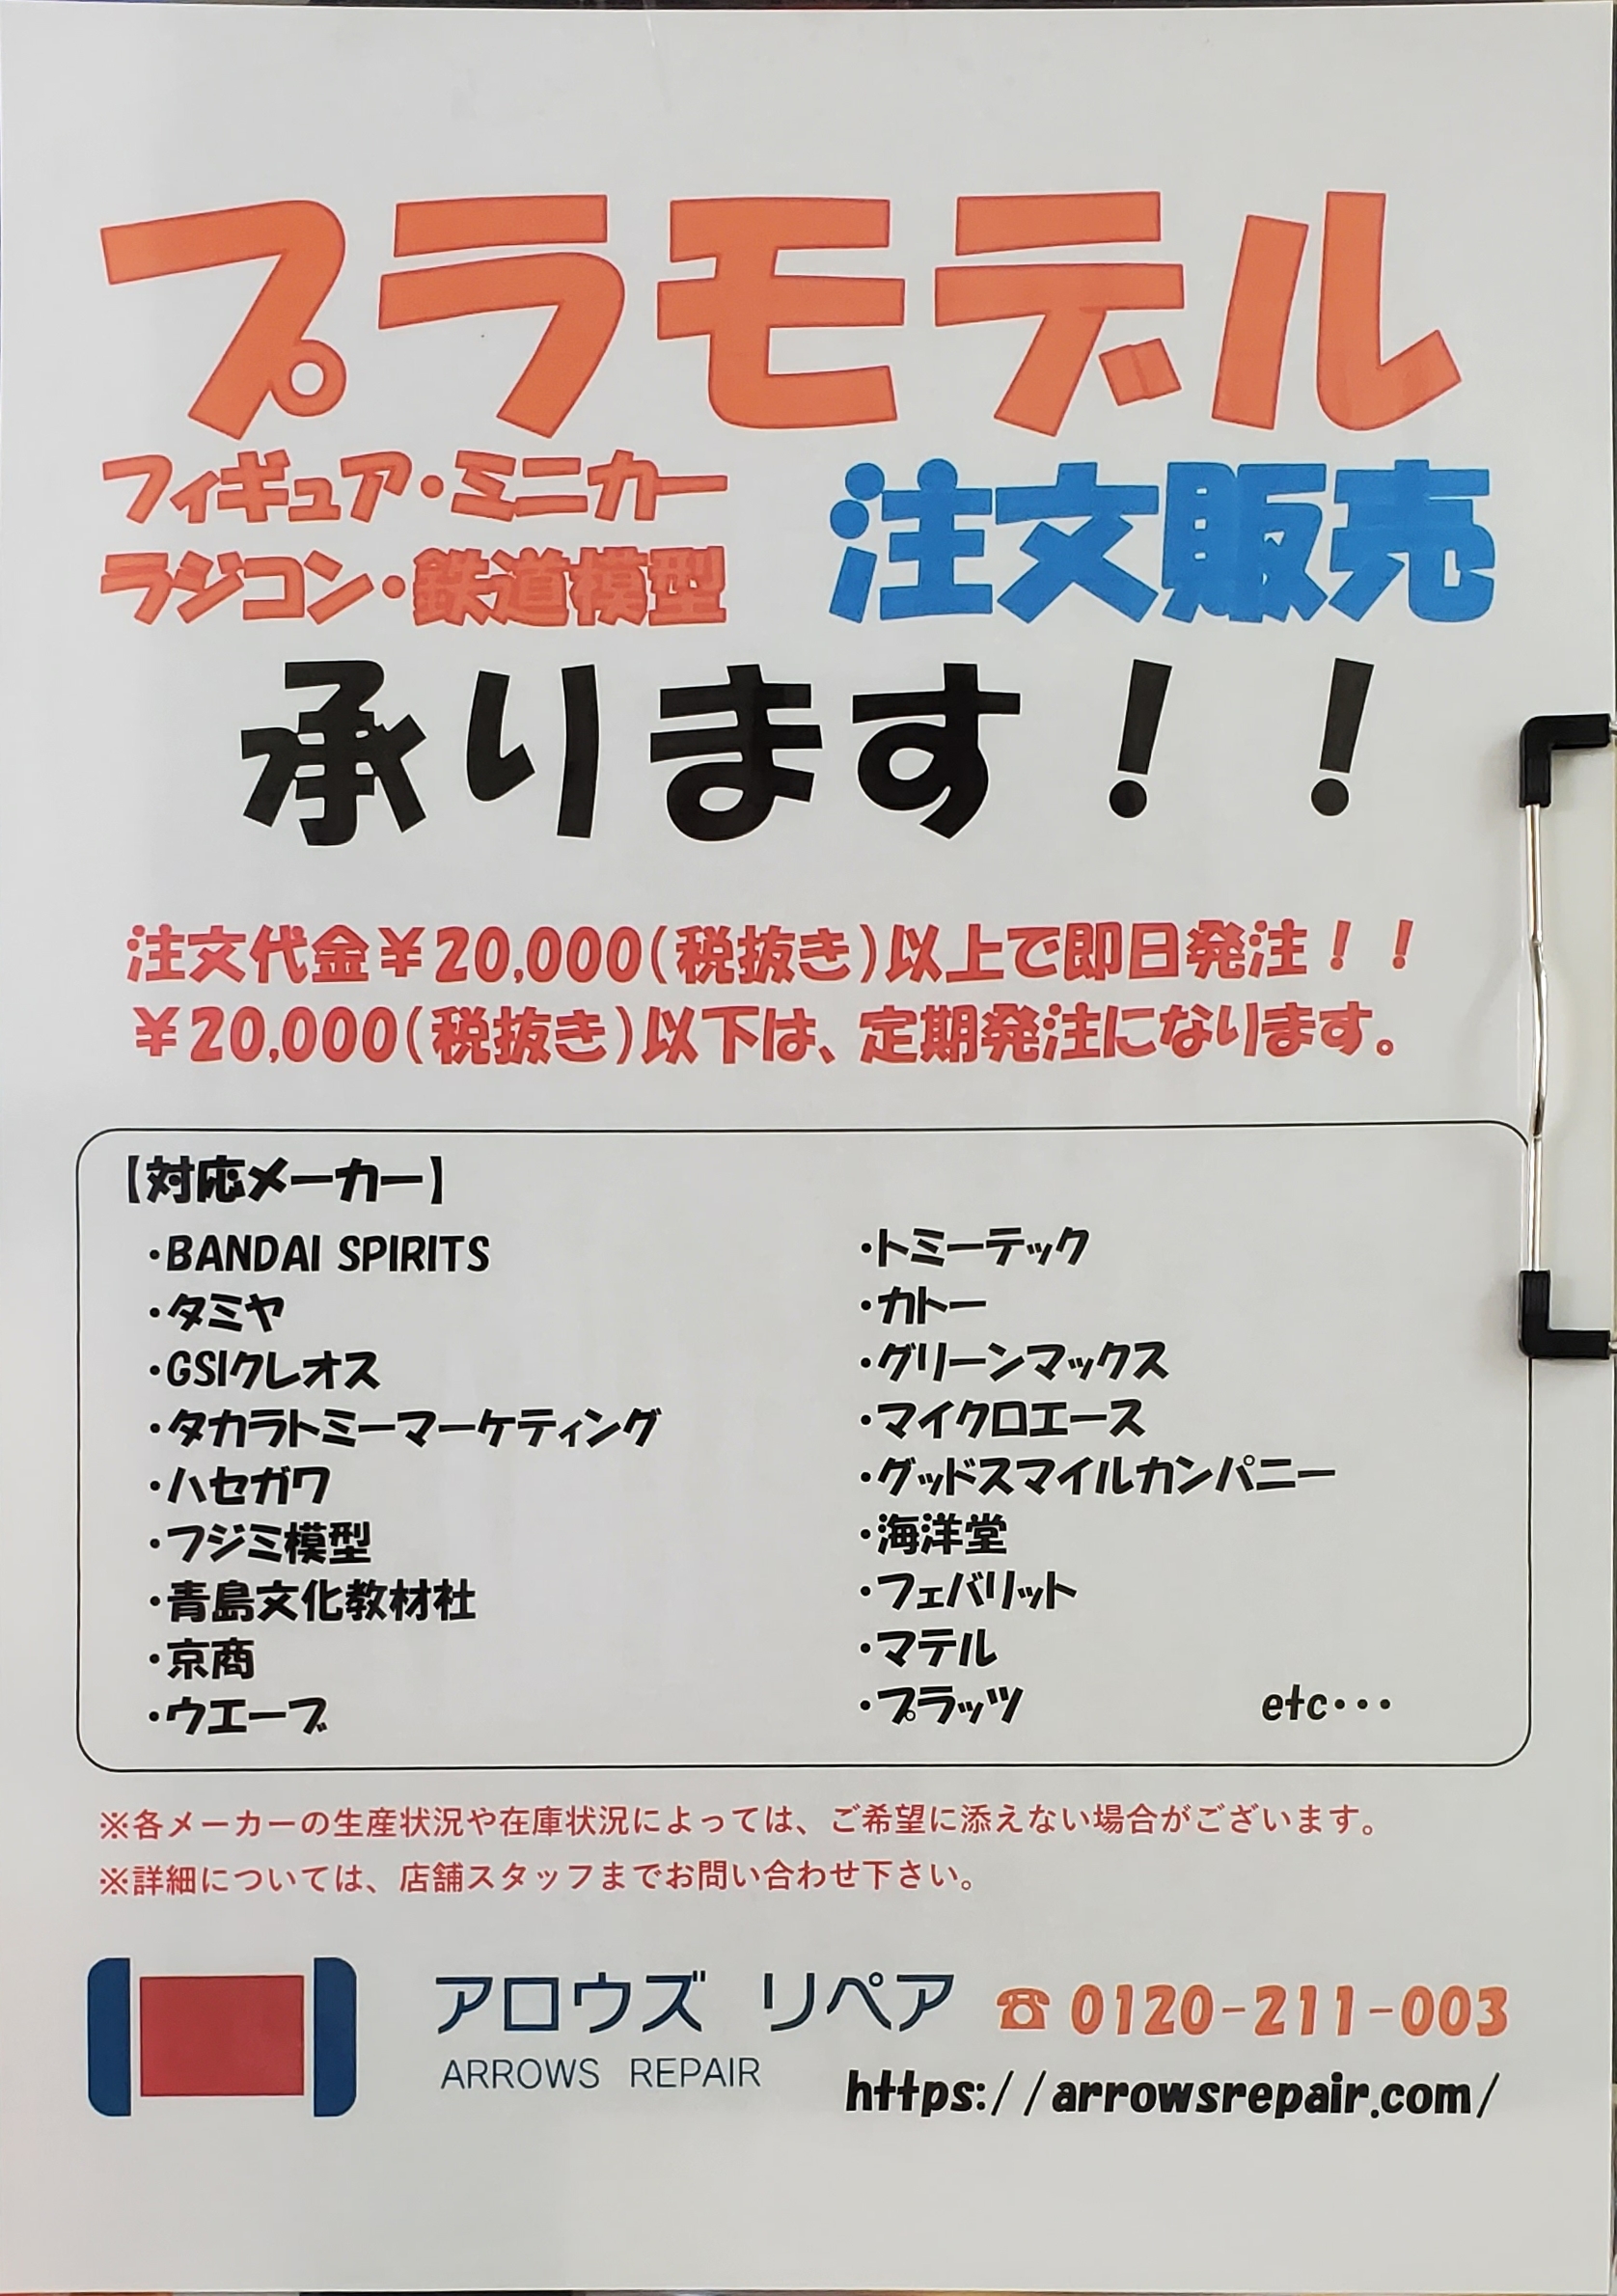 プラモデル
フィギュア・ミニカー
ラジコン・鉄道模型
注文販売
承ります！！
注文代金￥20,000(税抜き)以上で即日発注！！
￥20,000(税抜き)以下は、定期発注になります。
【対応メーカー】
・BANDAI SPIRITS
・タミヤ
・GSIクレオス
・タカラトミーマーケティング
・ハセガワ
・フジミ模型
・青島文化教材社
・京商
・ウエーブ
・トミーテック
・カトー
・グリーンマックス
・マイクロエース
・グッドスマイルカンパニー
・海洋堂
・フェバリット
・マテル
・プラッツ etc・・・
※各メーカーの生産状況や在庫状況によっては、ご希望に添えない場合がございます。
※詳細については、店舗スタッフまでお問い合わせ下さい。
アロウズ リペア ☎0120-211-003
ARROWS REPAIR
https://arrowsrepair.com/